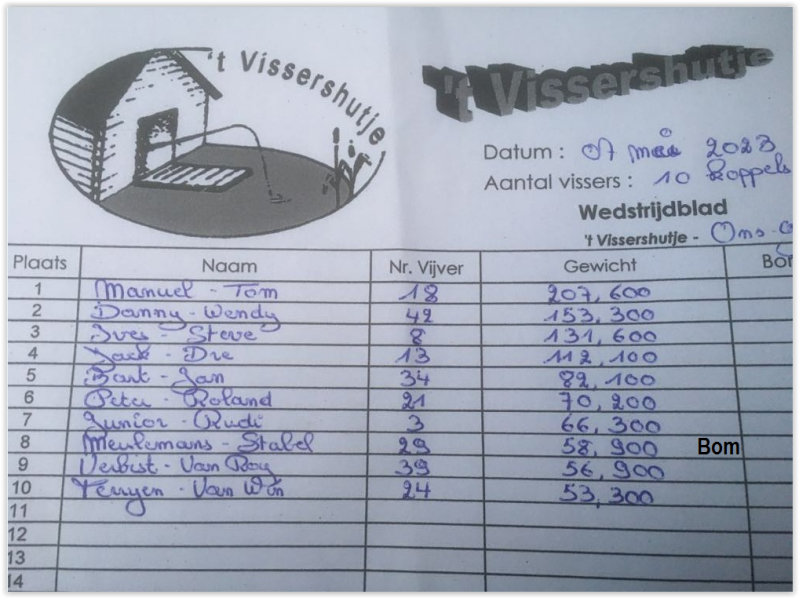 't Vissershutje
't Vissershutje
Datum : 07 mei 2023
Aantal vissers : 10 koppels
Wedstrijdblad
't Vissershutje - Ons
Plaats Naam Nr. Vijver Gewicht Bom
1 Manuel - Tom 18 207,600
2 Danny - Wendy 42 153,300
3 Yves - Steve 8 131,600
4 Jack - Dre 13 112,100
5 Bart - Jan 34 82,100
6 Peter - Roland 21 70,200
7 Junior - Rudi 3 66,300
8 Meulemans - Stabel 29 58,900 Bom
9 Verbist - Van Roy 39 56,900
10 Terryen - Van Win 24 53,300
11
12
13
14